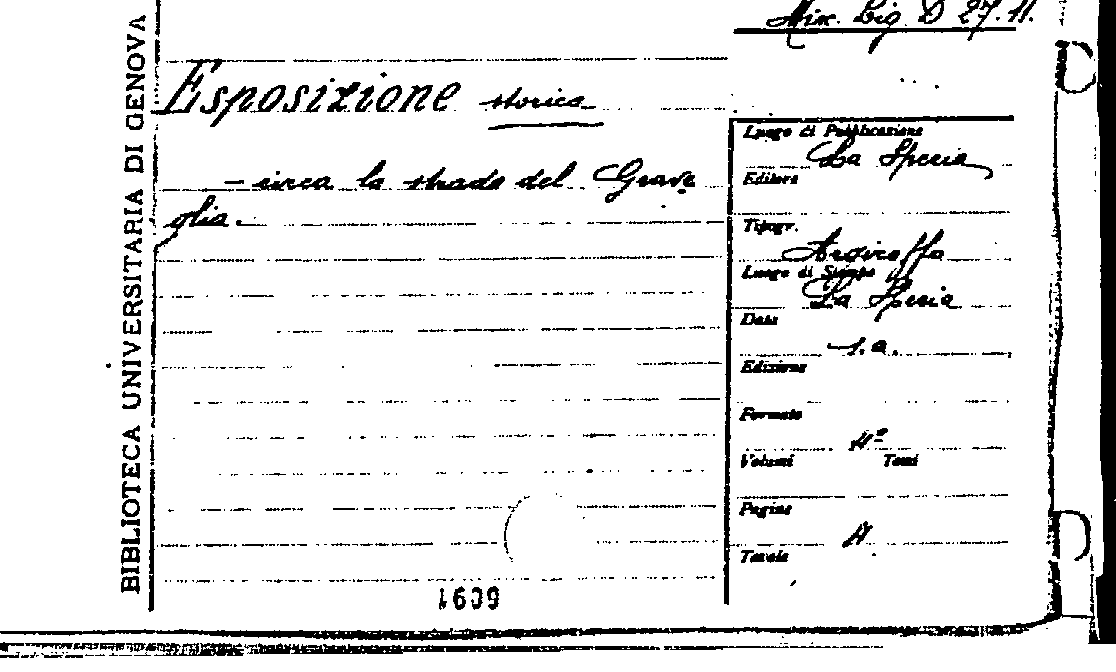 Misc. Lig. D 27.11.
BIBLIOTECA UNIVERSITARIA DI GENOVA
Esposizione storica
- circa la strada del Grave
glia.
Luogo di Pubblicazione
La Spezia
Editore
Tipogr.
Argiroffo
Luogo di Stampa
La Spezia
Data
s.a.
Edizione
Formato
4º
Volumi Tomi
Pagine
4
Tavole